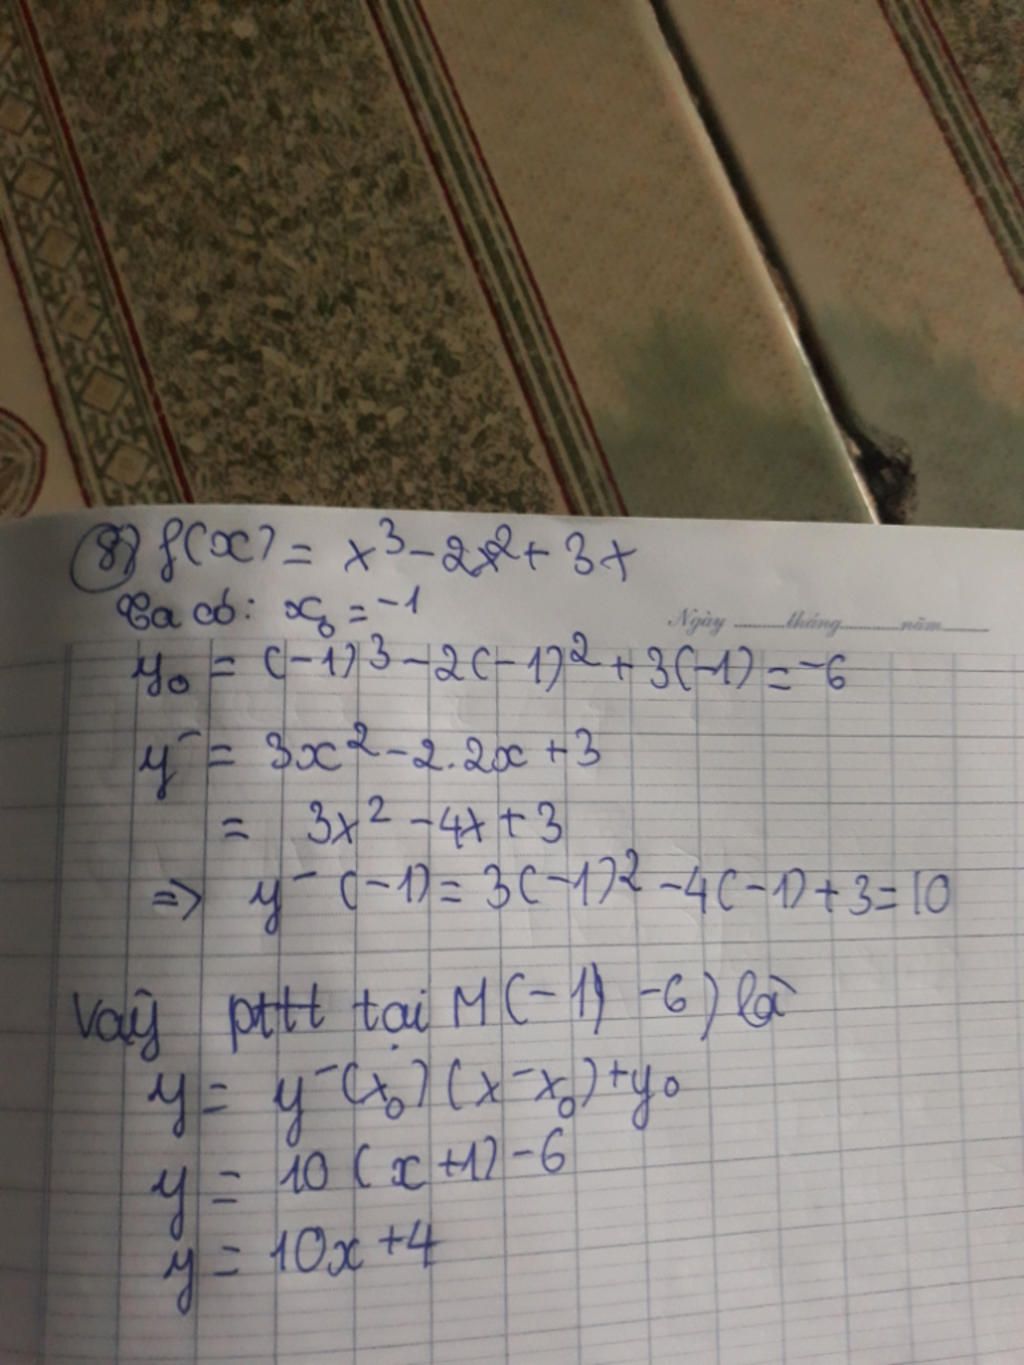 8) f(x) = x³ - 2x² + 3x
Ta có: x₀ = -1
Ngày ......... tháng ......... năm .........
y₀ = (-1)³ - 2(-1)² + 3(-1) = -6
y' = 3x² - 2.2x + 3
= 3x² - 4x + 3
=> y' (-1) = 3(-1)² - 4(-1) + 3 = 10
Vậy pttt tại M(-1; -6) là
y = y'(x₀)(x - x₀) + y₀
y = 10 (x + 1) - 6
y = 10x + 4